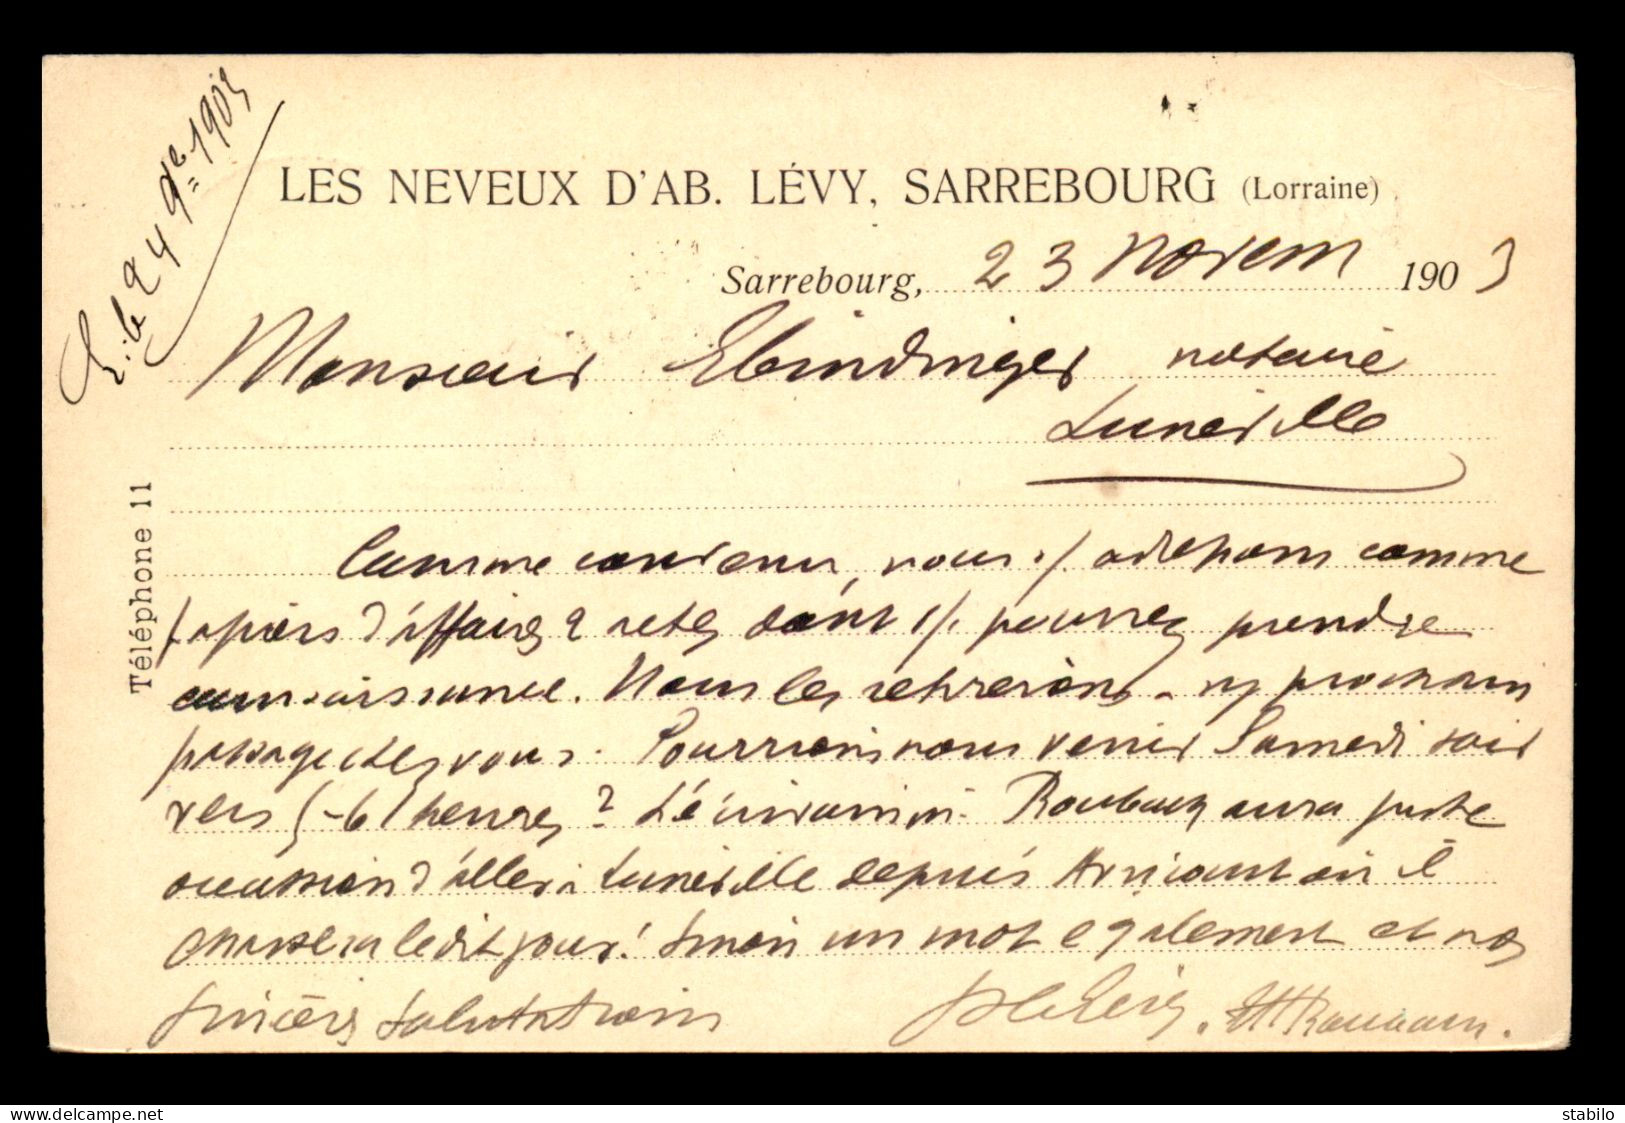 R. le 24 9bre 1903
LES NEVEUX D'AB. LÉVY, SARREBOURG (Lorraine)
Sarrebourg, 23 novem 1903
Monsieur Ebindinger notaire
Luneville
Téléphone 11
Comme convenu, nous v/. adressons comme
papiers d'affaires 2 actes dont v/. pourrez prendre
connaissance. Nous les retirerons à n/ prochain
passage chez vous. Pourrions nous venir Samedi soir
vers 5-6 heures? Roubach aura juste
occasion d'aller à Luneville depuis Avricourt où il
chassera ledit jour! Sinon un mot également et nos
sincères salutations